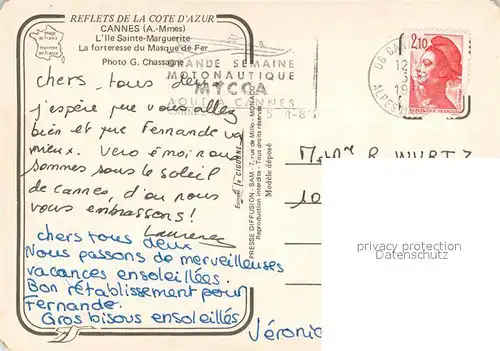 REFLETS DE LA COTE D'AZUR
CANNES (A.-Mmes)
L'Ile Sainte-Marguerite
La forteresse du Masque de Fer
Photo G. Chassagne
Image de France
Imprimée en France
chers tous deux
j'espère que vous allez
bien et que Fernande va
mieux. Véro é moi nous
sommes sous le soleil
de cannes, d'où nous
vous embrassons!
Laurence
chers tous deux
Nous passons de merveilleuses
vacances ensoleillées.
Bon rétablissement pour
Fernande.
Gros bisous ensoleillés
Véronic
GRANDE SEMAINE
MOTONAUTIQUE
MYCCA
AOUT CANNES
06 CAN
12
3
19
ALPES
2,10
Edité la CIGOGNE
PRESSE DIFFUSION - SAM - 7, rue de Millo - MONACO
Reproduction interdite - Tous droits réservés
Modèle déposé
R. WURTZ
10
privacy protection
Datenschutz